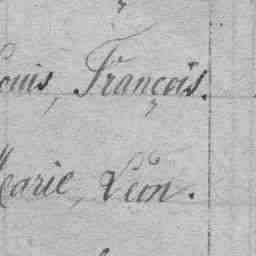 Louis, François.
Marie, Léon.